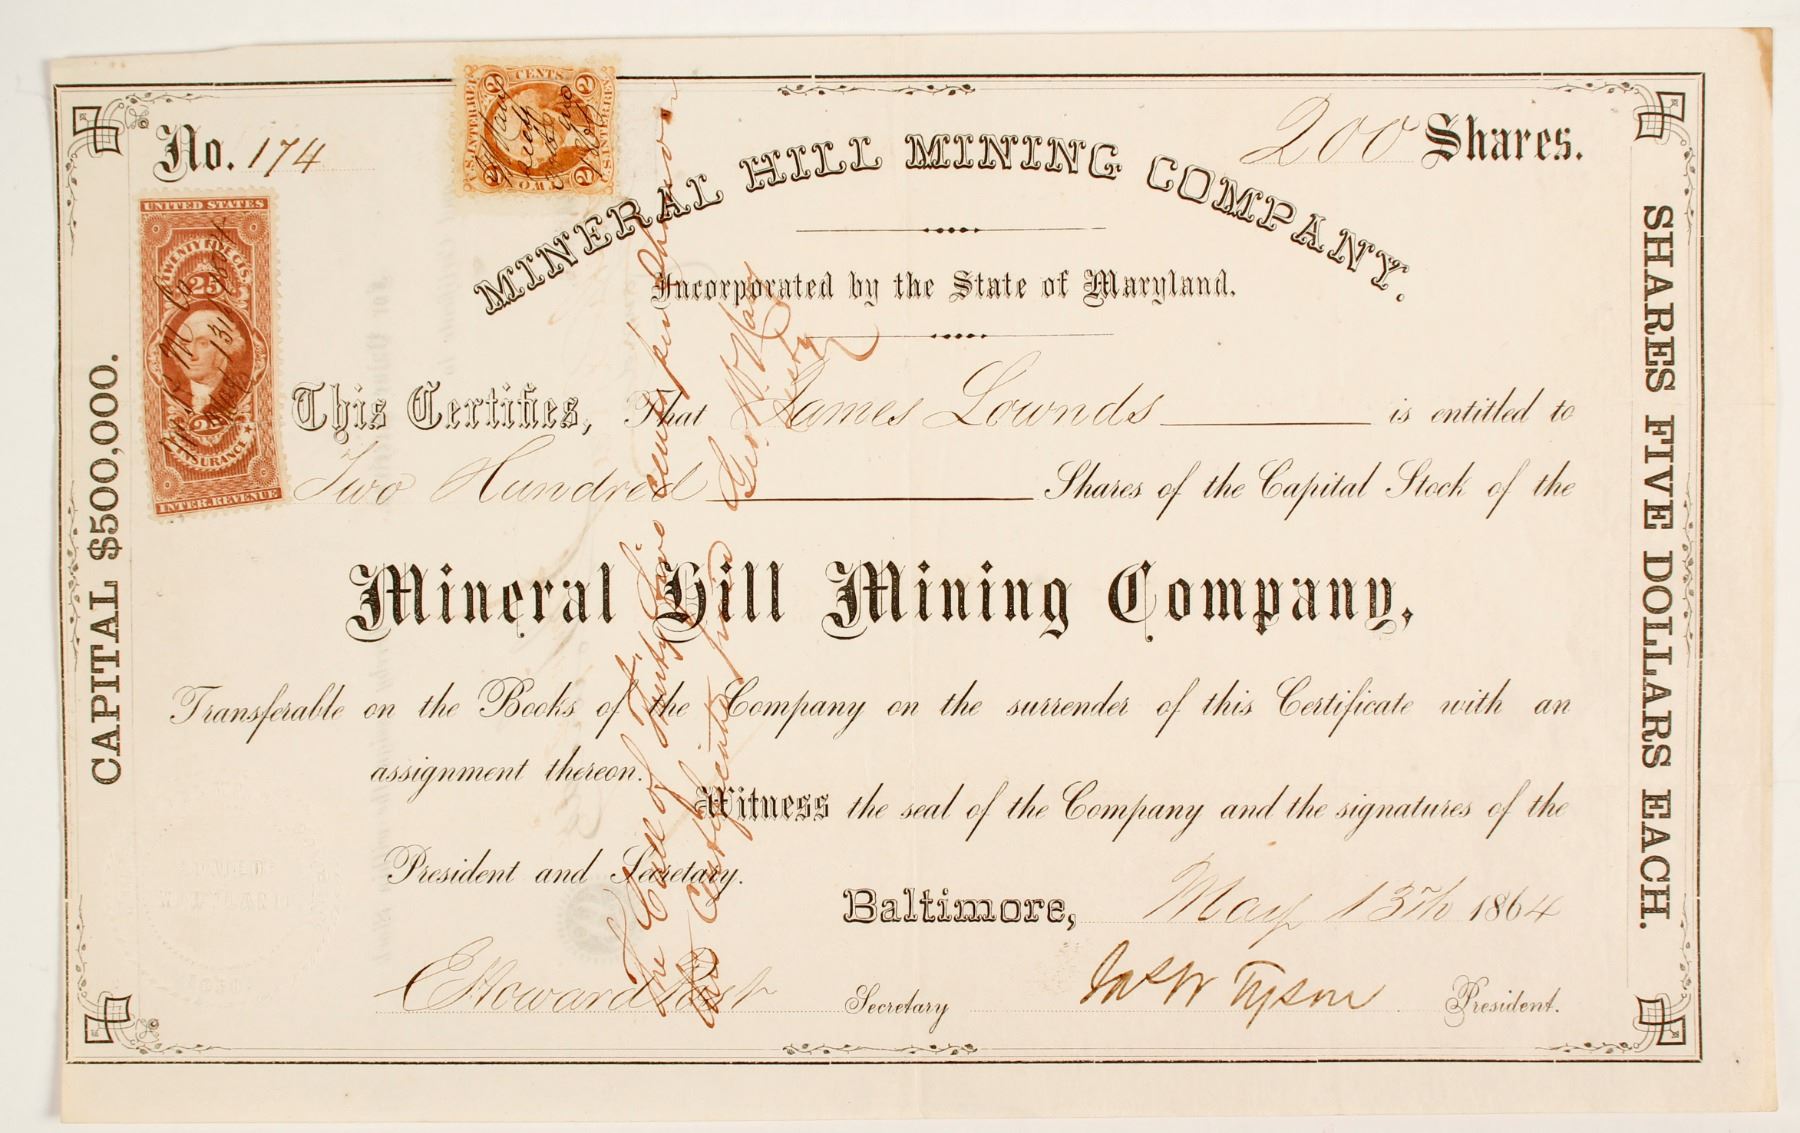 No. 174
200 Shares.
MINERAL HILL MINING COMPANY.
Incorporated by the State of Maryland.
This Certifies, That James Lownds is entitled to
Two Hundred Shares of the Capital Stock of the
Mineral Hill Mining Company,
Transferable on the Books of the Company on the surrender of this Certificate with an
assignment thereon.
Witness the seal of the Company and the signatures of the
President and Secretary.
Baltimore, May 13th 1864
E Howard Secretary Tyson President.
CAPITAL $500,000.
SHARES FIVE DOLLARS EACH.
CENTS
2 2
U.S. INTER. REV.
TWO
2 2
UNITED STATES
TWENTY FIVE CENTS
25
25
INSURANCE
INTER. REVENUE
The Call of Twenty Five cents per Share on
this Certificate paid
Secty